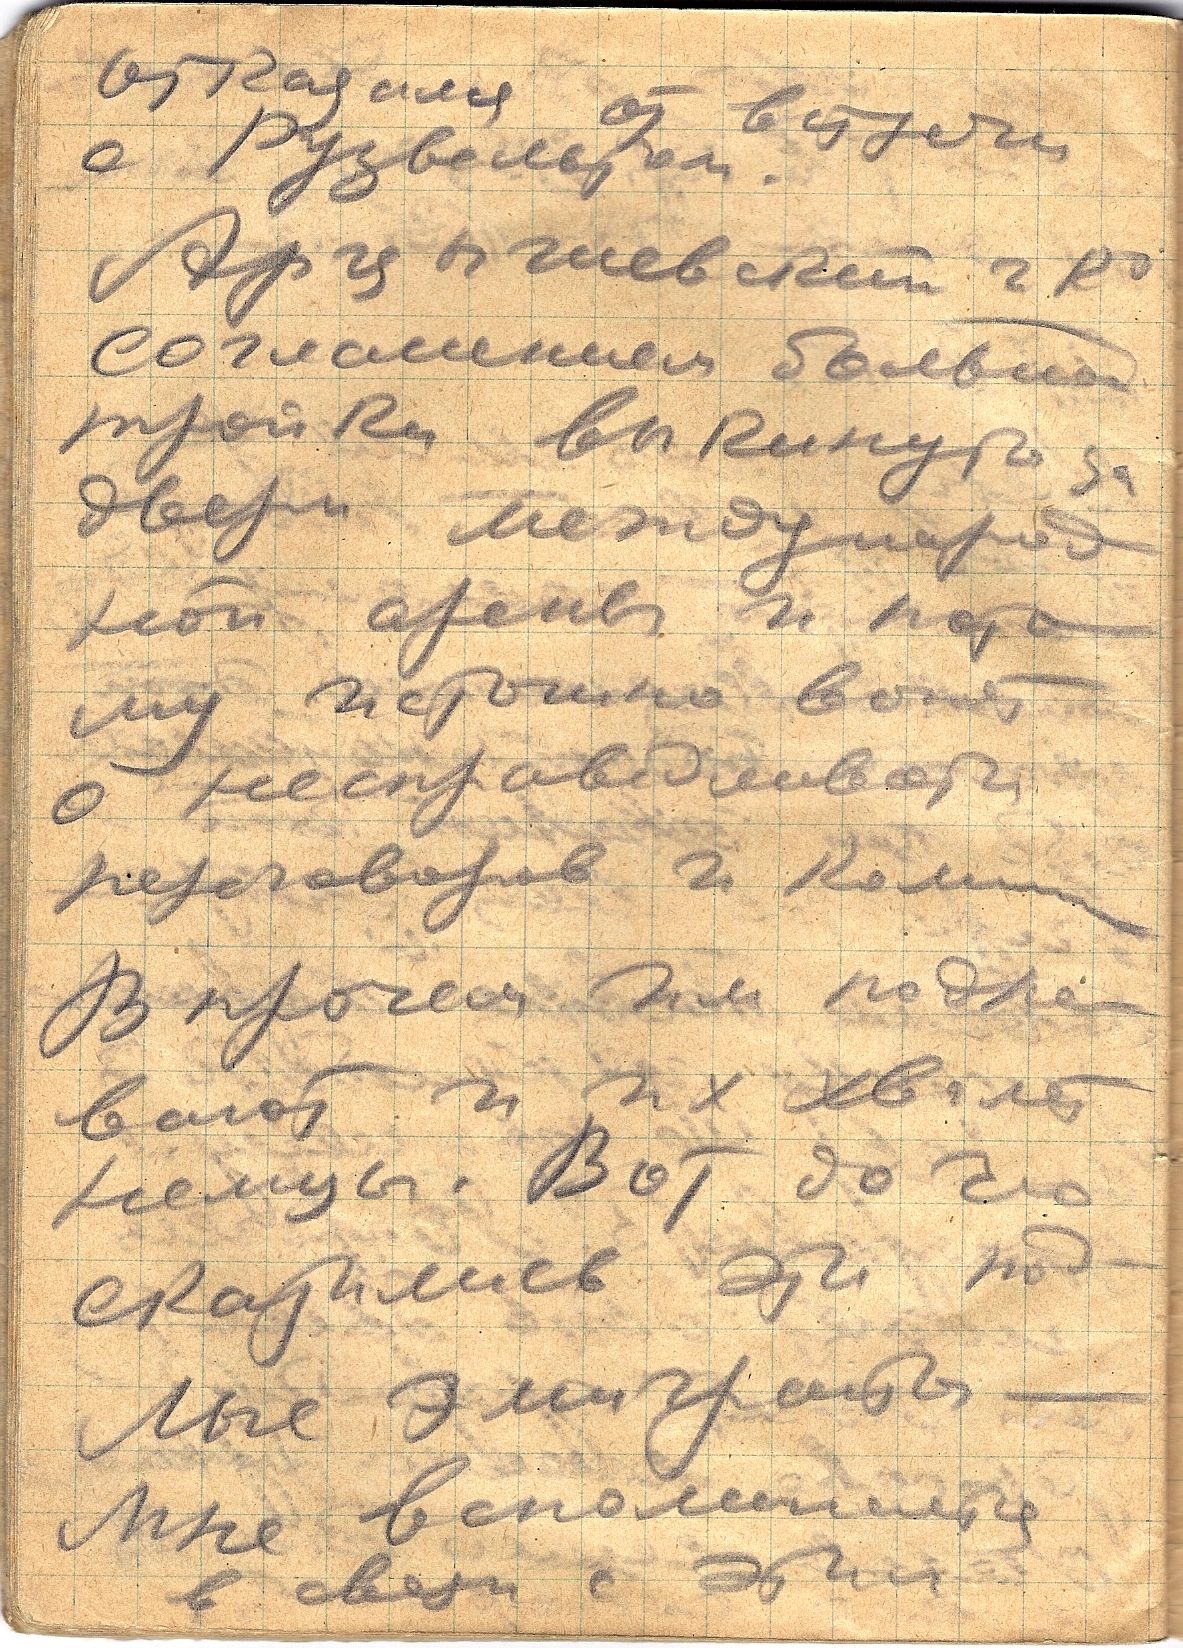 отказался от встречи
с Рузвельтом.
Арцышевский и Ко
соглашением большой
тройки выкинуто за
двери международ
ной арены и пото
му истошно вопят
о несправедливости
переговоров и
Впрочем им подпе
вают и их хвалят
немцы. Вот до чего
скатились эти под-
лые эмигранты —
Мне вспомнился
в связи с этим